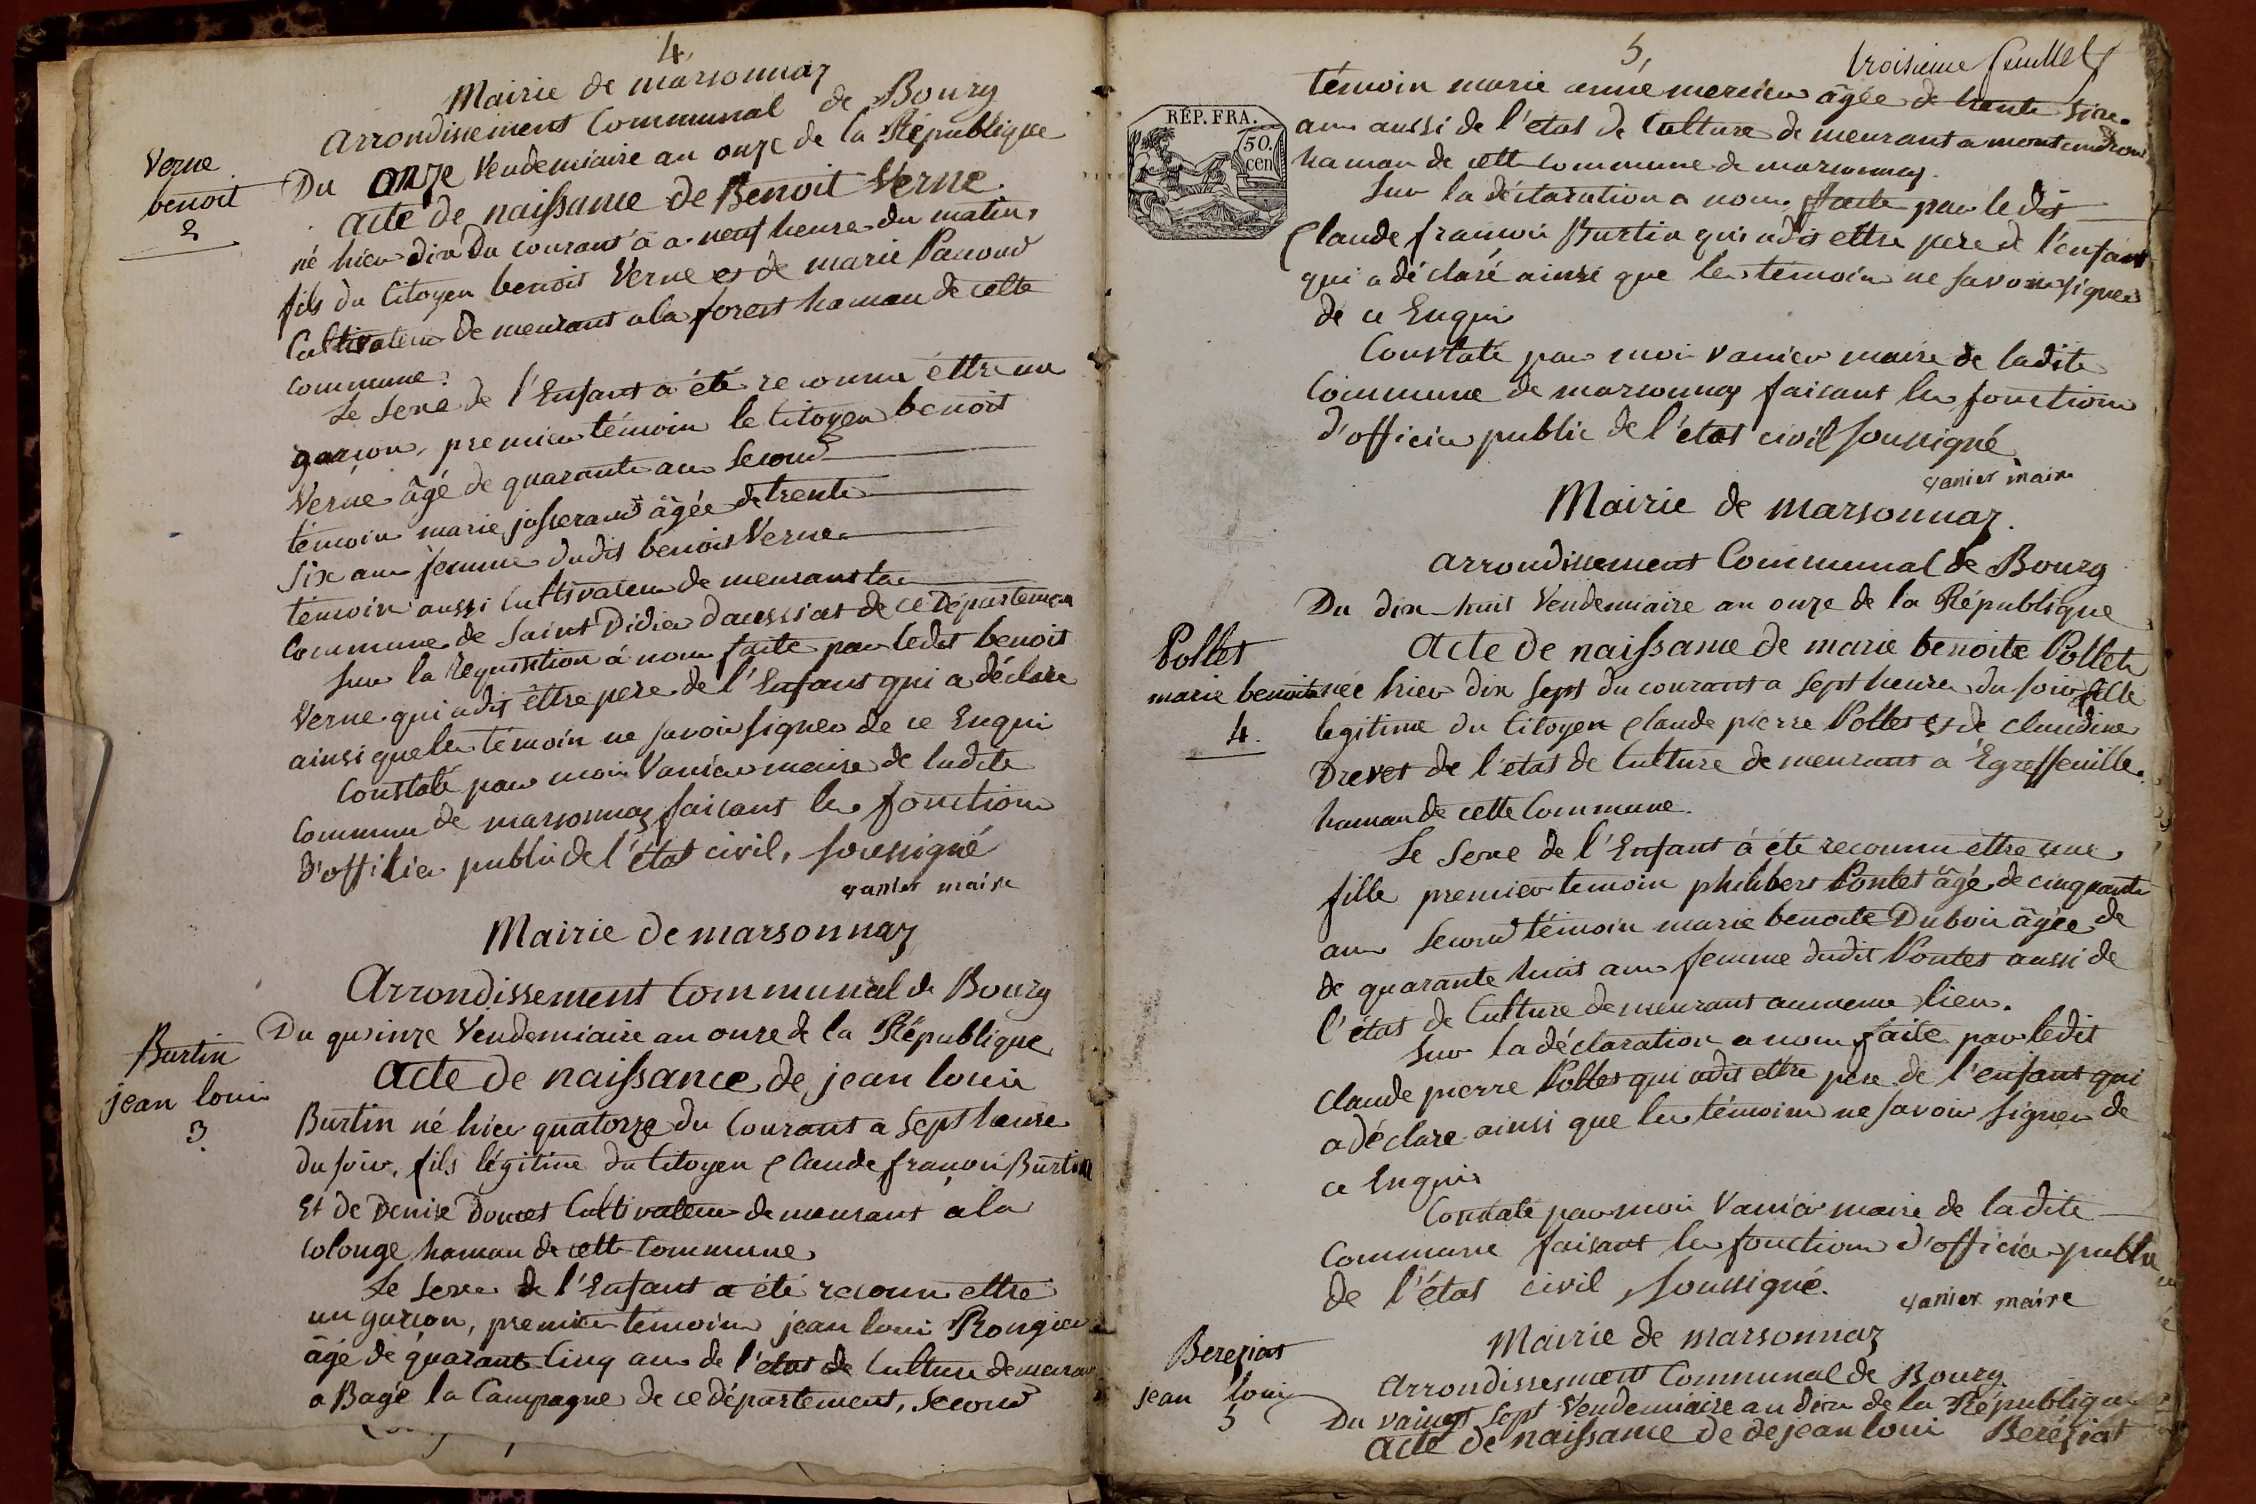 4,
Mairie de marsonnaz
arrondissement Communal de Bourg
Verne
benoit
2
Du onze Vendemiaire an onze de la République
acte de naissance de Benoit Verne
né hier dix du courant à a neuf heure du matin,
fils du Citoyen benoit Verne et de marie Pacoud
Cultivateur demeurant a la forest hamau de cette
commune.
Le sexe de l'Enfant a été reconnu être un
garçon, premier témoin le Citoyen benoit
Verne âgé de quarante ans second
témoin marie josserand âgée de trente
six ans femme dudit benoit Verne
témoin aussi Cultivateur demeurant
Commune de Saint Didier daussiat de ce Département
Sur la Requisition à nous faite par ledit benoit
Verne qui a dit être pere de l'Enfant qui a déclaré
ainsi que les témoin ne savoir signer de ce Enquis
Constaté par moi Vanier maire de ladite
Commune de marsonnaz faisant les fonctions
d'officier public de l'état civil, soussigné
vanier maire
Mairie de marsonnaz
Arrondissement Communal de Bourg
Burtin
jean louis
3
Du quinze Vendemiaire an onze de la République
Acte de naissance de jean louis
Burtin né hier quatorze du Courant a sept heure
du soir, fils légitime du Citoyen Claude françois Burtin
Et de Denise Doucet Cultivateur demeurant à la
Colonge hamau de cette Commune
Le sexe de l'Enfant a été reconnu être
un garçon, premier témoin jean louis Rongier
âgé de quarante cinq ans de l'état de Culture demeurant
a Bagé la Campagne de ce département, second
5,
troisieme feuillet
RÉP. FRA.
50.
cen
témoin marie anne mercier âgée de trente six
ans aussi de l'état de Culture demeurant a
hamau de cette commune de marsonnaz.
Sur la déclaration a nous faite par ledit
Claude françois Burtin qui a dit être pere de l'enfant
qui a déclaré ainsi que les témoin ne savoir signer
de ce Enquis
Constaté par moi vanier maire de ladite
Commune de marsonnaz faisant les fonctions
d'officier public de l'état civil soussigné
vanier maire
Mairie de marsonnaz.
arrondissement Communal de Bourg
Du dix huit Vendemiaire an onze de la République
Pollet
marie benoite
4.
acte de naissance de marie benoite Pollet
née hier dix sept du courant a sept heure du soir fille
legitime du Citoyen Claude pierre Pollet et de claudine
Drevet de l'état de Culture demeurant a Egreffeuille
hamau de cette Commune.
Le sexe de l'Enfant à été reconnu être une
fille premier temoin philibert Pontet âgé de cinquante
ans second témoin marie benoite Dubois âgée de
de quarante huit ans femme dudit Pontet aussi de
l'état de Culture demeurant au meme lieu.
Sur la déclaration a nous faite par ledit
Claude pierre Pollet qui a dit être pere de l'enfant qui
a déclaré ainsi que les témoins ne savoir signer de
ce Enquis
Constaté par moi Vanier maire de ladite
Commune faisant les fonctions d'officier public
de l'état civil soussigné.
vanier maire
Mairie de marsonnaz
arrondissement Communal de Bourg
Bereziat
jean louis
5
Du vaingt sept Vendemiaire an dix de la République
acte de naissance de de jean louis Bereziat